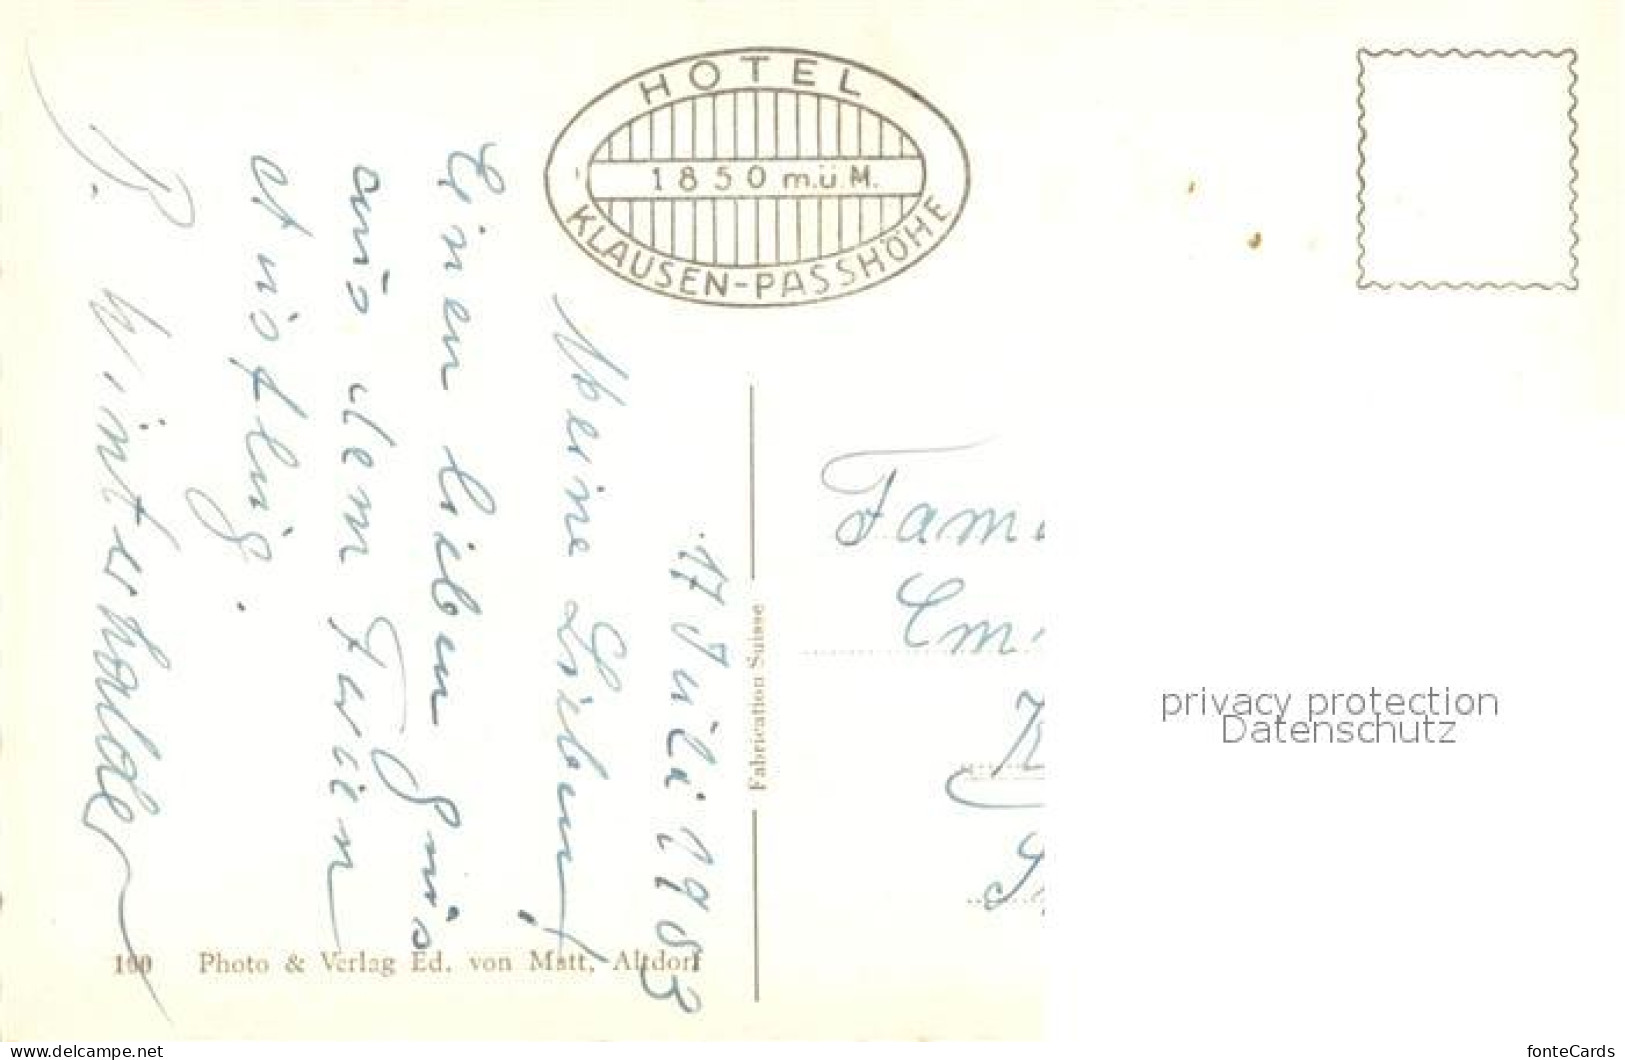 HOTEL
1850 m.ü M.
KLAUSEN-PASSHÖHE
17 Juli 1953
Meine Lieben!
Einen lieben Gruss
aus dem Ferien
Ausflug.
P. Winterhalder
Fam.
Em
Fabrication Suisse
100 Photo & Verlag Ed. von Matt, Altdorf
privacy protection
Datenschutz
www.delcampe.net
fonteCards